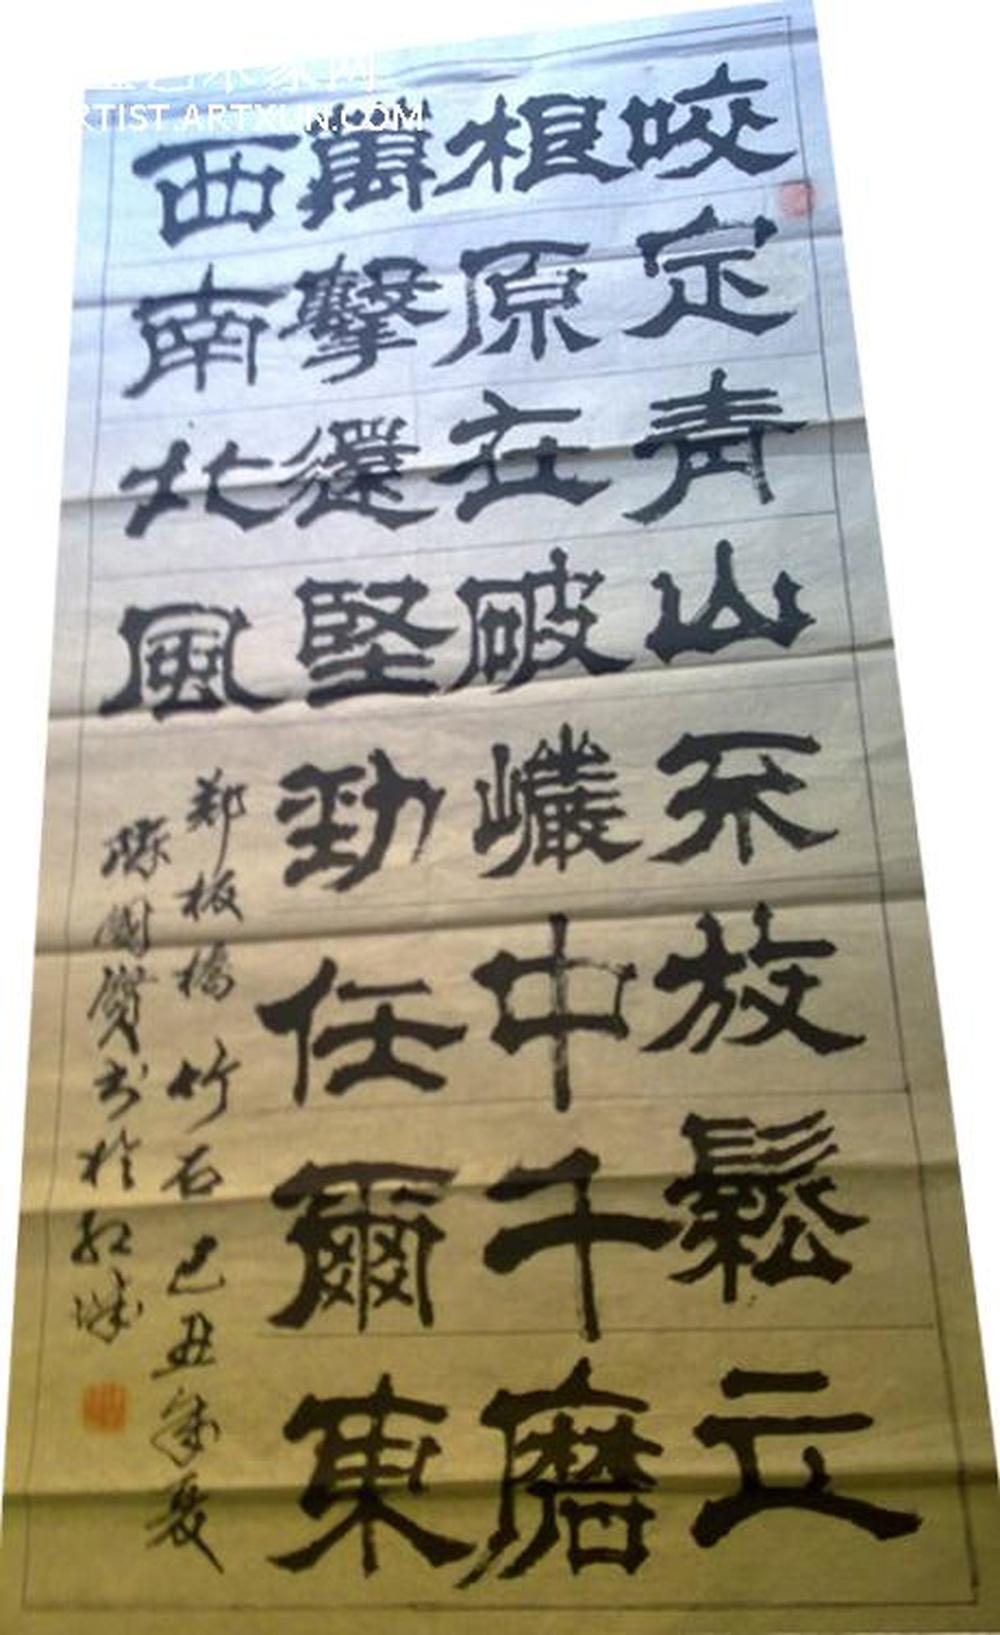 艺术家网
RTIST.ARTXUN.COM
咬定青山不放鬆立
根原在破巖中千磨
萬擊還堅勁任爾東
西南北風
郑板橋竹石己丑年夏
陳國书於红城